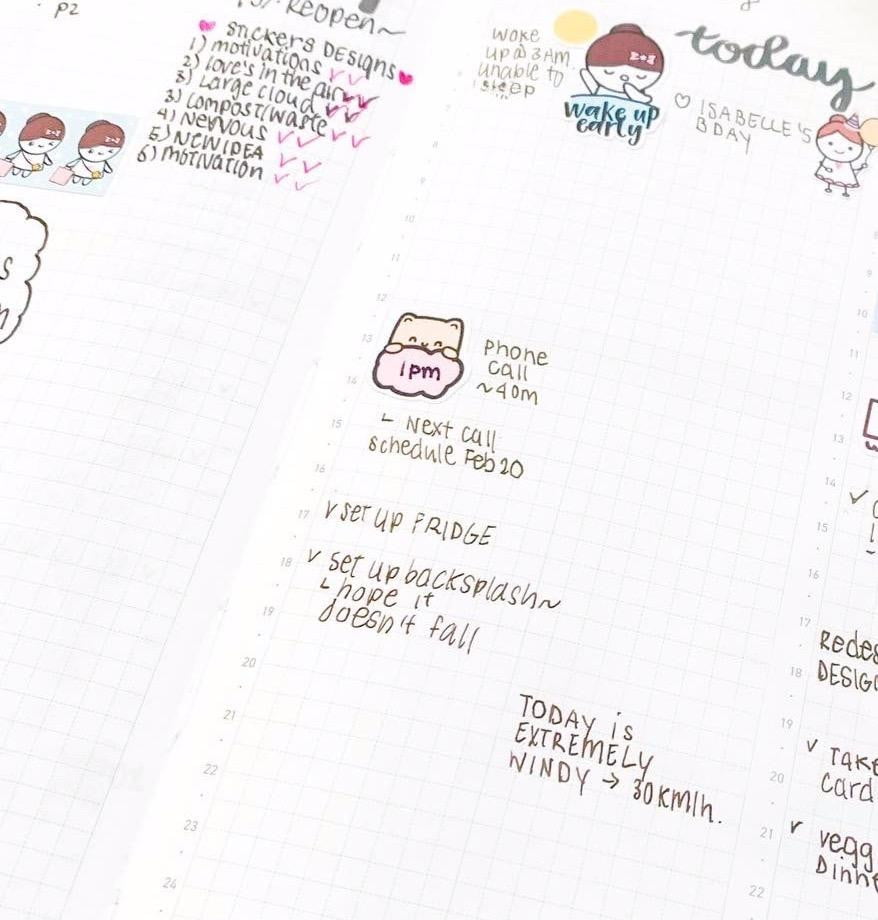 P2
REOPEN~
STICKERS DESIGNS
1) motivations
2) love's in the air
3) Large cloud
3) compost/waste
4) NERVOUS
5) NEW IDEA
6) motivation
S
woke
up @ 3AM.
unable to
sleep
wake up
early
today
♡ ISABELLE'S
BDAY
8
9
10
11
12
13
14
15
16
17
18
19
20
21
22
23
24
1pm
Phone
call
~40m
Next call
schedule Feb 20
v set up FRIDGE
v set up backsplash~
hope it
doesn't fall
TODAY is
EXTREMELY
WINDY → 30KM/h.
8
9
10
11
12
13
14
15
16
17
18
19
20
21
22
REDES
DESIG
v TAKE
card
v vegg
Dinn